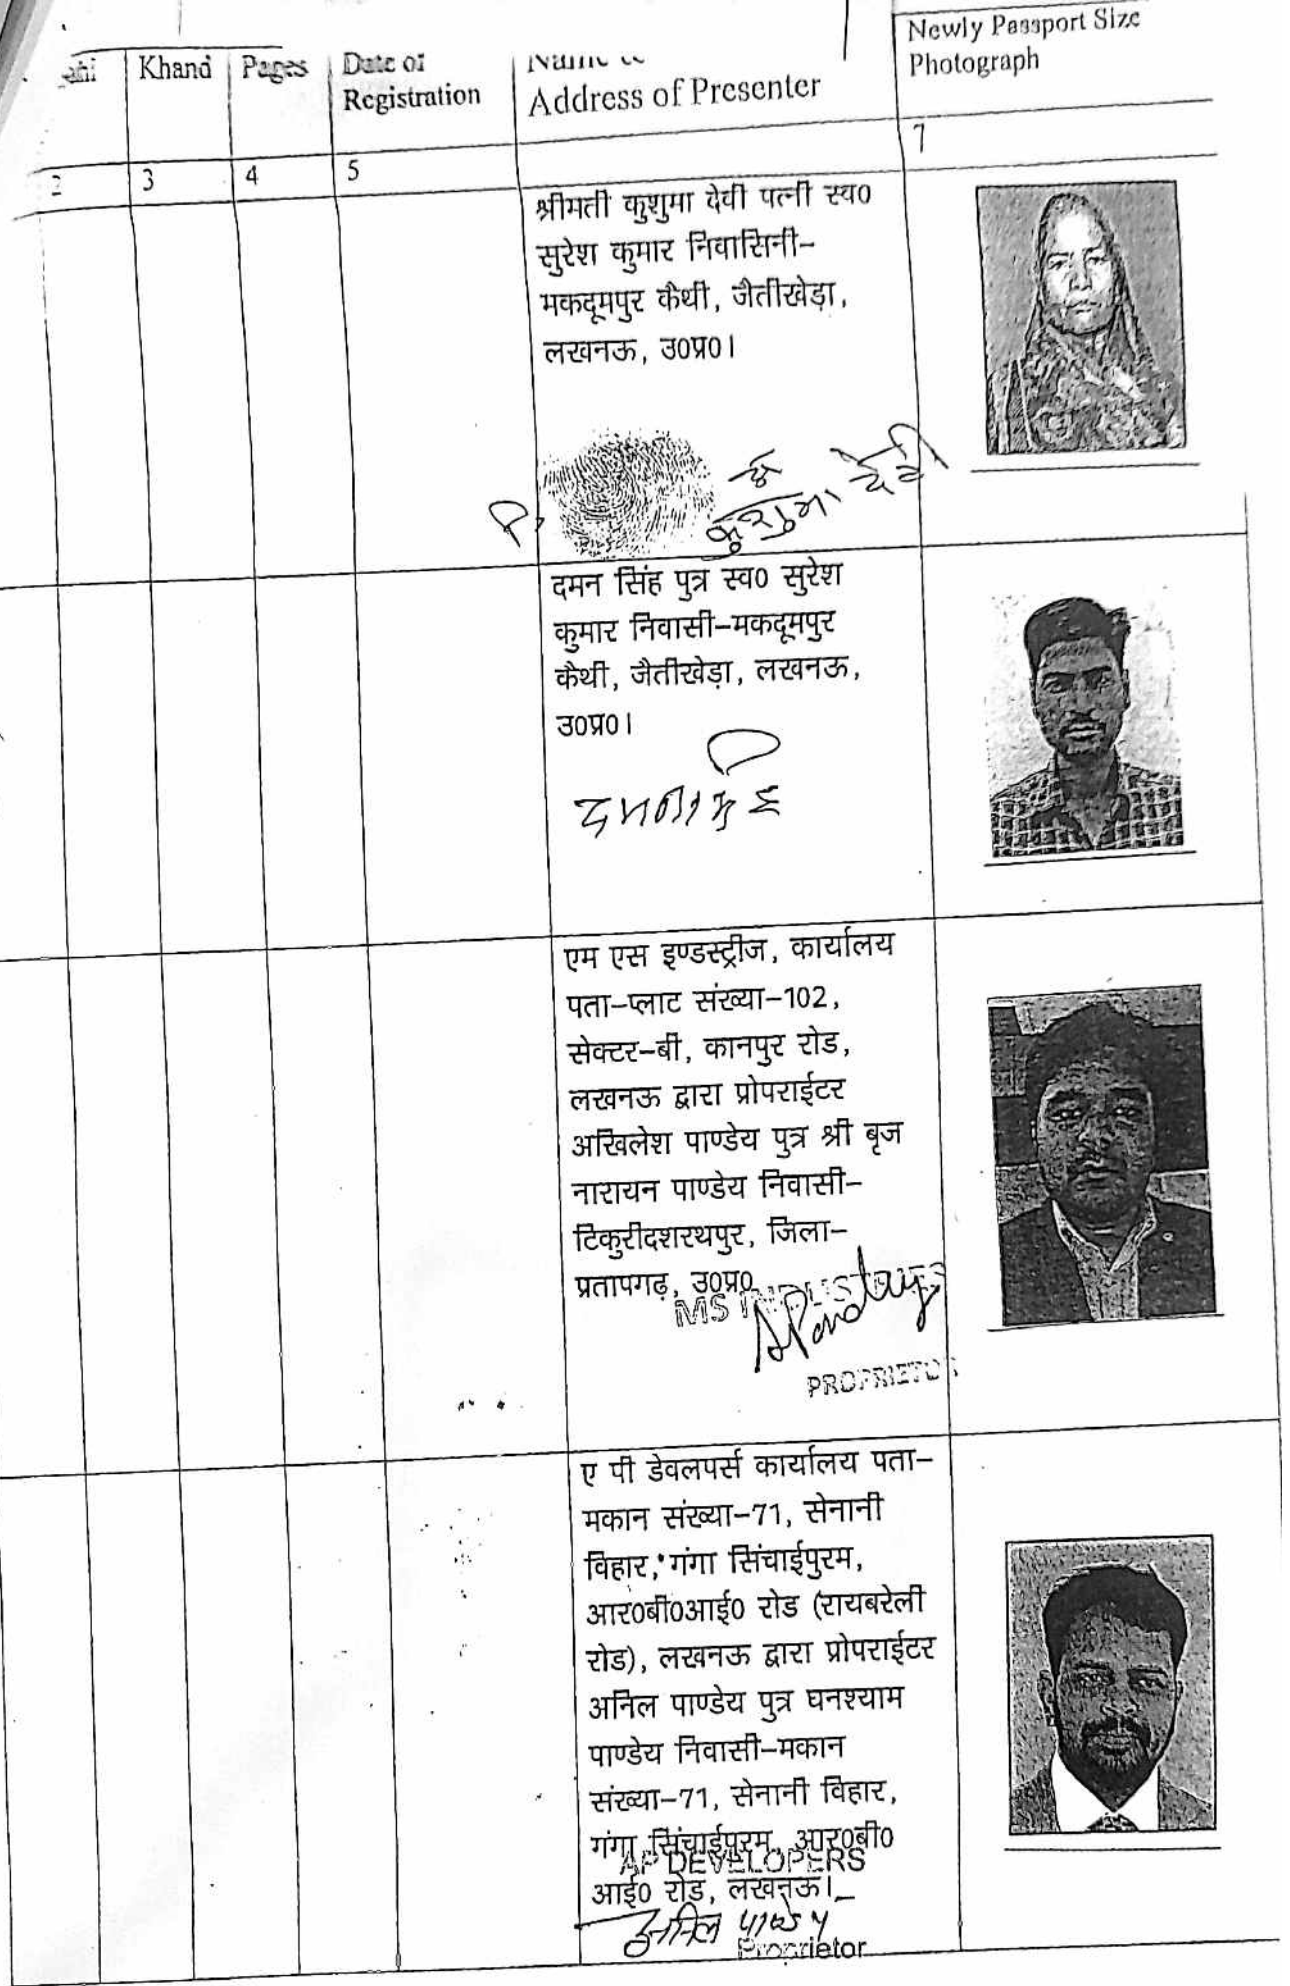 Khand
Pages
Date of
Registration
Address of Presenter
Newly Passport Size
Photograph
2
3
4
5
7
श्रीमती कुशुमा देवी पत्नी स्व0
सुरेश कुमार निवासिनी-
मकदूमपुर कैथी, जैतीखेड़ा,
लखनऊ, उ0प्र0।
कुशुमा देवी
दमन सिंह पुत्र स्व0 सुरेश
कुमार निवासी-मकदूमपुर
कैथी, जैतीखेड़ा, लखनऊ,
उ0प्र0।
एम एस इण्डस्ट्रीज, कार्यालय
पता-प्लाट संख्या-102,
सेक्टर-बी, कानपुर रोड,
लखनऊ द्वारा प्रोपराईटर
अखिलेश पाण्डेय पुत्र श्री बृज
नारायन पाण्डेय निवासी-
टिकुरीदशरथपुर, जिला-
प्रतापगढ़, उ0प्र0
MS INDUSTRIES
APandey
PROPRIETOR
ए पी डेवलपर्स कार्यालय पता-
मकान संख्या-71, सेनानी
विहार, गंगा सिंचाईपुरम,
आर0बी0आई0 रोड (रायबरेली
रोड), लखनऊ द्वारा प्रोपराईटर
अनिल पाण्डेय पुत्र घनश्याम
पाण्डेय निवासी-मकान
संख्या-71, सेनानी विहार,
गंगा सिंचाईपुरम, आर0बी0
AP DEVELOPERS
आई0 रोड, लखनऊ।
अनिल पाण्डेय
Proprietor